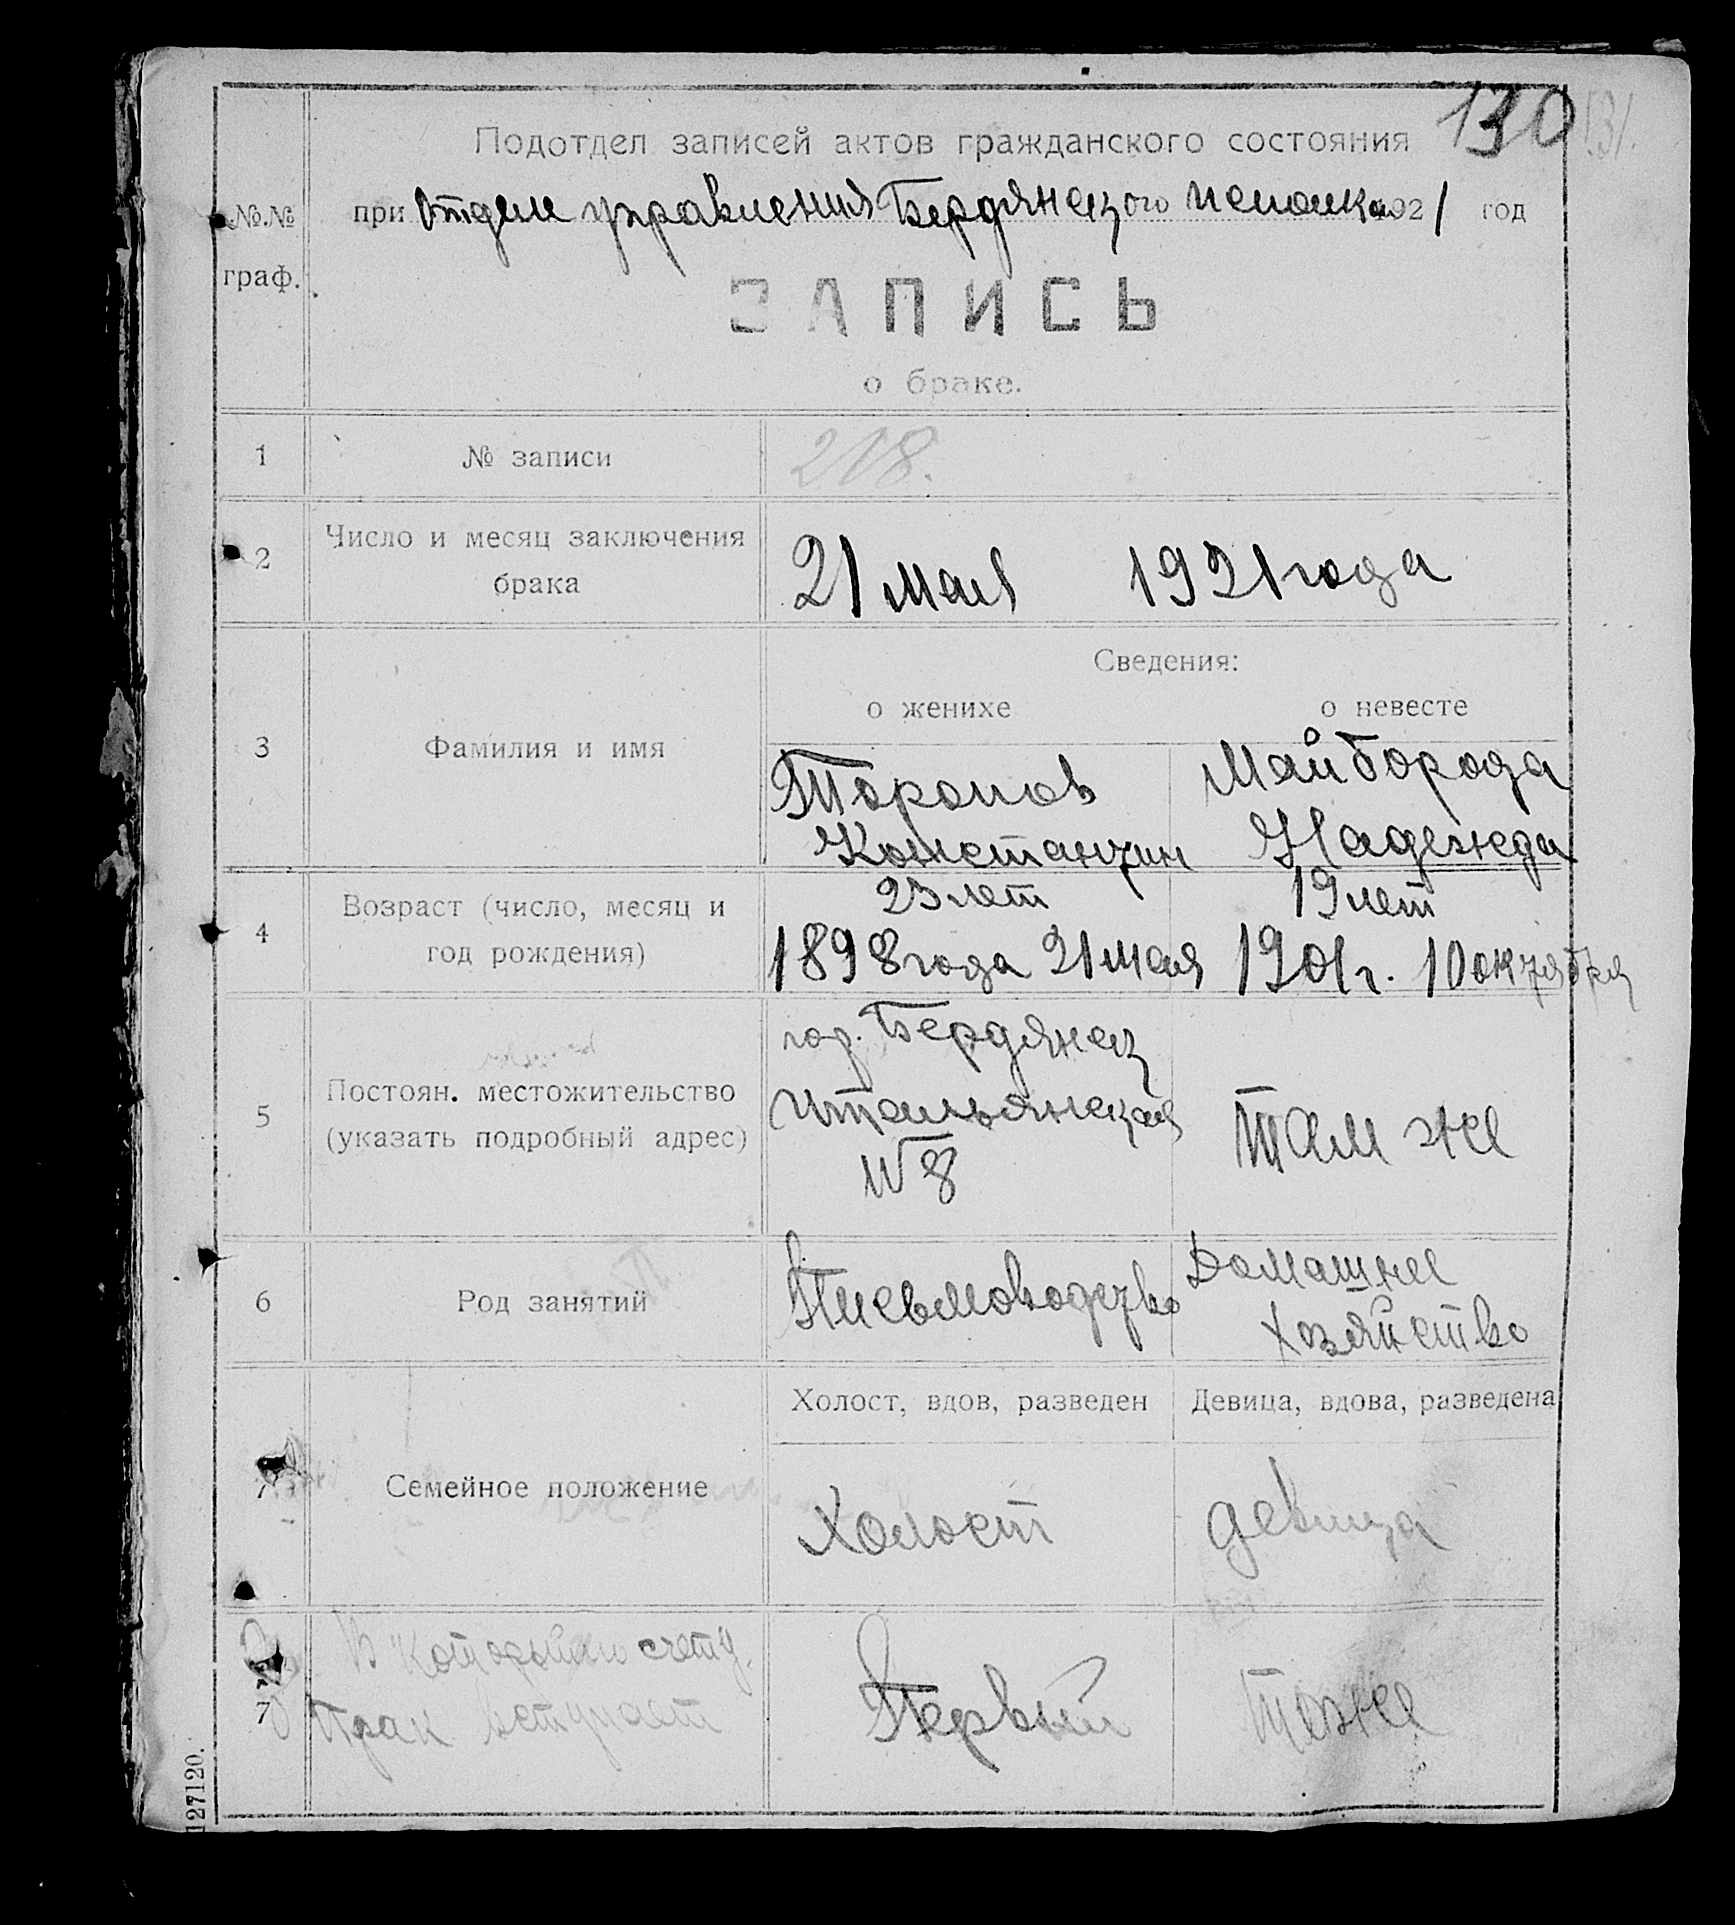 130 131.
Подотдел записей актов гражданского состояния
№.№ граф.
при Отделе управления Бердянского исполкома 1921 год
ЗАПИСЬ
о браке.
1 № записи 218.
2 Число и месяц заключения брака 21 мая 1921 года
Сведения:
о женихе о невесте
3 Фамилия и имя
Торопов Майборода
Константин Надежда
4 Возраст (число, месяц и год рождения)
23 лет 19 лет
1898 года 21 мая 1901 г. 10 октября
5 Постоян. местожительство (указать подробный адрес)
гор. Бердянск
Итальянская Там же
№ 8
6 Род занятий
Письмоводство Домашнее
хозяйство
Холост, вдов, разведен Девица, вдова, разведена
7 Семейное положение
Холост девица
7 В который по счету
брак вступает
Первый тоже
127120.